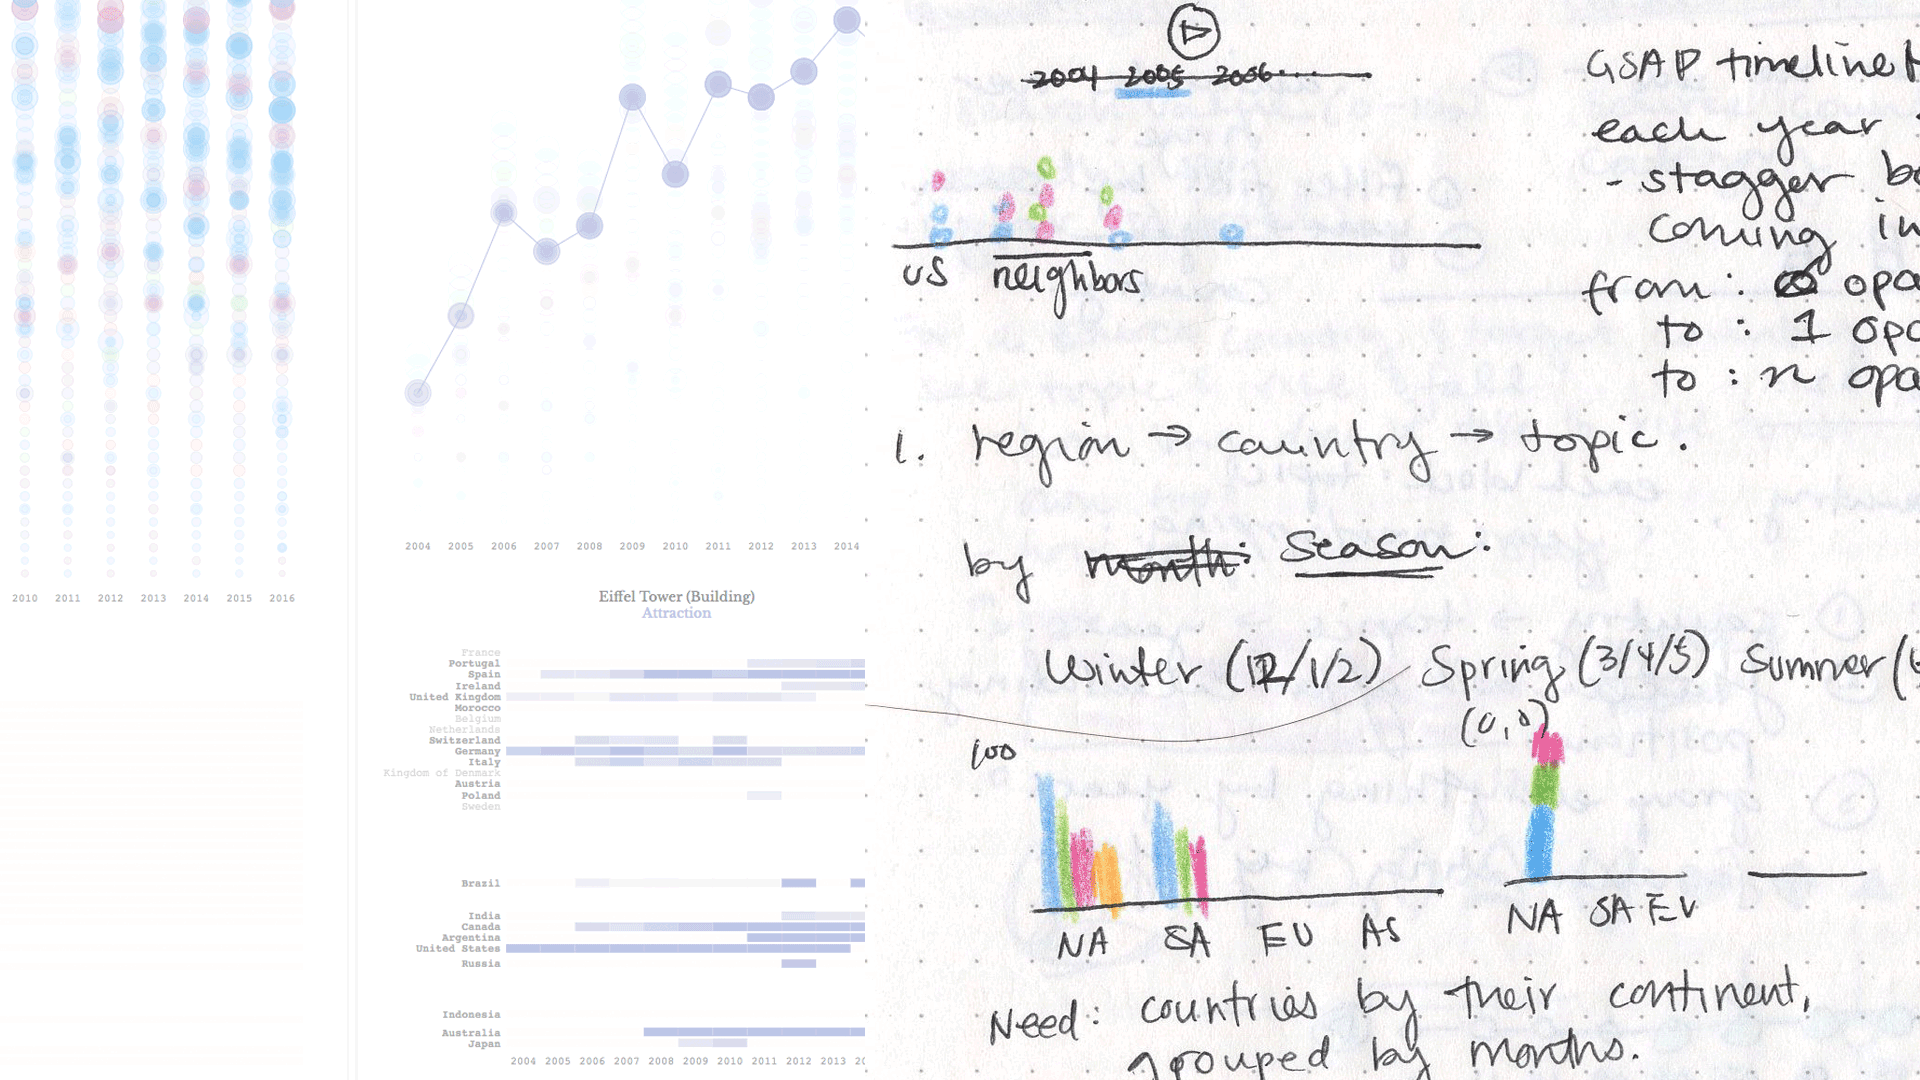 2010 2011 2012 2013 2014 2015 2016
2004 2005 2006 2007 2008 2009 2010 2011 2012 2013 2014
Eiffel Tower (Building)
Attraction
France
Portugal
Spain
Ireland
United Kingdom
Morocco
Belgium
Netherlands
Switzerland
Germany
Italy
Kingdom of Denmark
Austria
Poland
Sweden
Brazil
India
Canada
Argentina
United States
Russia
Indonesia
Australia
Japan
2004 2005 2006 2007 2008 2009 2010 2011 2012 2013
2004 2005 2006....
US neighbors
GSAP timeline
each year
- stagger
coming in
from: 0
to: 1
to: n
1. region → country → topic.
by month: Season:
Winter (12/1/2) Spring (3/4/5) Summer
100
NA SA EU AS
(0,0)
NA SA EU
Need: countries by their continent,
grouped by months.